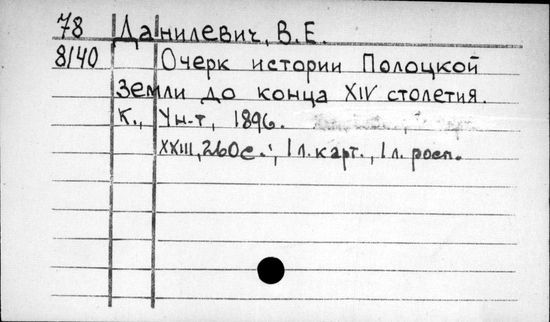 78 Данилевич, В.Е.
8140 Очерк истории Полоцкой
Земли до конца XIV столетия.
К., Ун-т, 1896.
XXIII, 260с.; 1 л. карт., 1 л. росп.